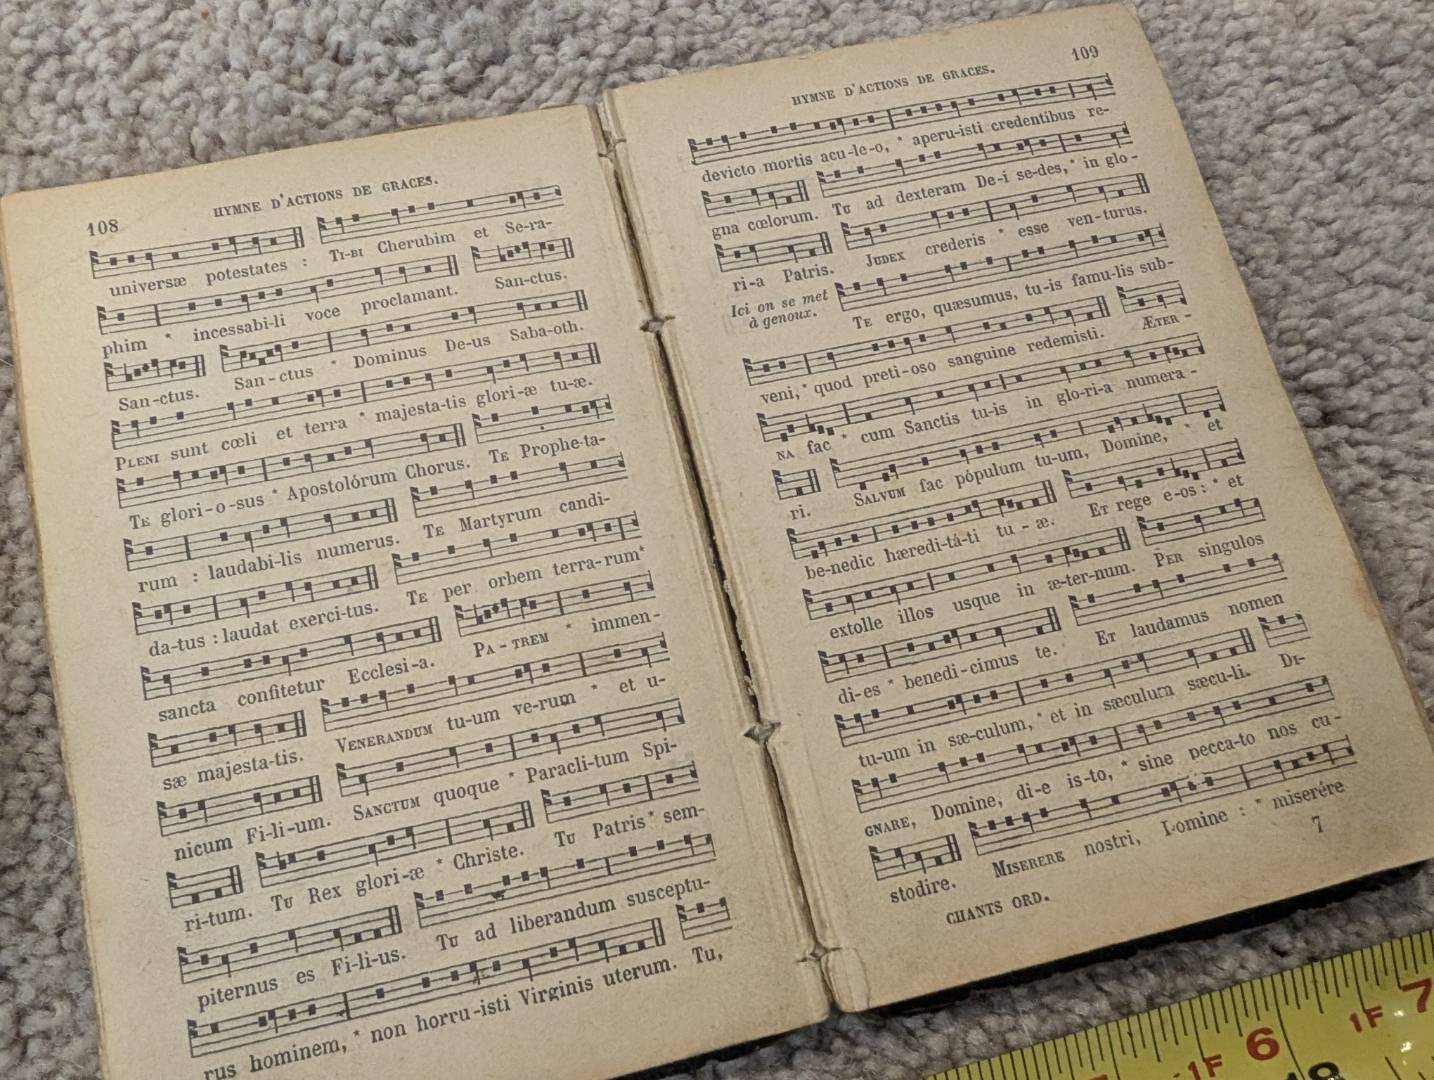 108
HYMNE D'ACTIONS DE GRACES.
universæ potestates : TI-BI Cherubim et Se-ra-
phim * incessabi-li voce proclamant. San-ctus.
San-ctus. San-ctus * Dominus De-us Saba-oth.
PLENI sunt cœli et terra * majesta-tis glori-æ tu-æ.
TE glori-o-sus * Apostolórum Chorus. TE Prophe-ta-
rum : laudabi-lis numerus. TE Martyrum candi-
da-tus : laudat exerci-tus. TE per orbem terra-rum *
sancta confitetur Ecclesi-a. PA-TREM * immen-
sæ majesta-tis. VENERANDUM tu-um ve-rum * et u-
nicum Fi-li-um. SANCTUM quoque * Paracli-tum Spi-
ri-tum. TU Rex glori-æ * Christe. TU Patris * sem-
piternus es Fi-li-us. TU ad liberandum susceptu-
rus hominem, * non horru-isti Virginis uterum. Tu,
HYMNE D'ACTIONS DE GRACES.
109
devicto mortis acu-le-o, * aperu-isti credentibus re-
gna cœlorum. TU ad dexteram De-i se-des, * in glo-
ri-a Patris. JUDEX crederis * esse ven-turus.
Ici on se met
à genoux.
TE ergo, quæsumus, tu-is famu-lis sub-
veni, * quod preti-oso sanguine redemisti. ÆTER-
NA fac * cum Sanctis tu-is in glo-ri-a numera-
ri. SALVUM fac pópulum tu-um, Domine, * et
be-nedic hæredi-tá-ti tu-æ. ET rege e-os : * et
extolle illos usque in æ-ter-num. PER singulos
di-es * benedi-cimus te. ET laudamus nomen
tu-um in sæ-culum, * et in sæculum sæcu-li. DI-
GNARE, Domine, di-e is-to, * sine pecca-to nos cu-
stodire. MISERERE nostri, Domine : * miserére
CHANTS ORD.
7
1F 6 1F 7